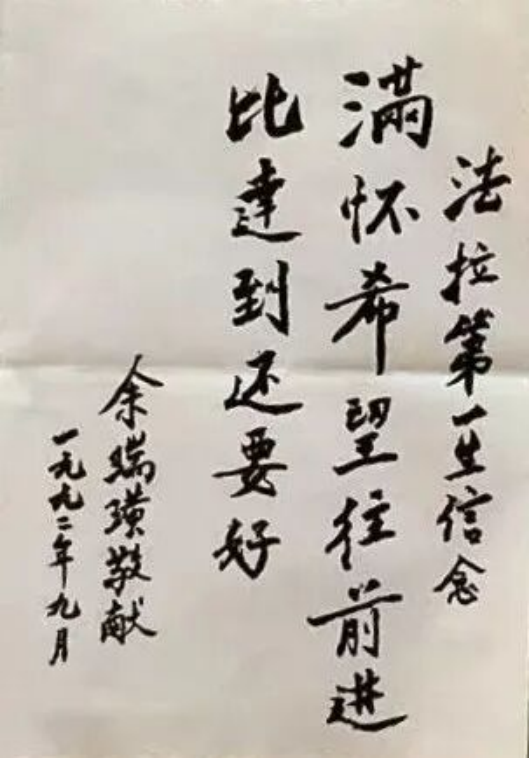 法拉第一生信念
滿怀希望往前进
比達到还要好
余瑞璜敬献
一九九二年九月